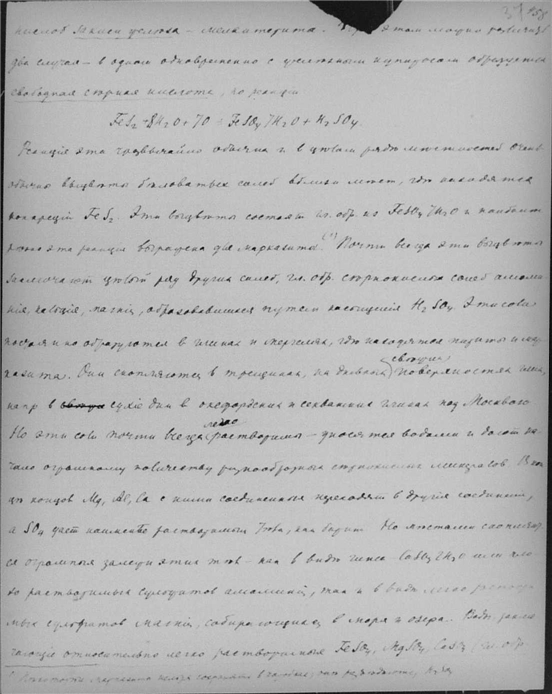 кислоб закиси железа – мелантерита. При этом можно различать
два случая – в одном одновременно с железным купоросом образуется
свободная серная кислота, по реакции
FeS₂ + 8H₂O + 7O = FeSO₄7H₂O + H₂SO₄.
Реакция эта чрезвычайно обычна и в целом ряде местностей очень
обычно выцветы беловатых солей вблизи мест, где находятся
конкреции FeS₂. Эти выцветы состоят гл. обр. из FeSO₄7H₂O и наиболее
эта реакция выражена для марказита.⁽¹⁾ Почти всегда эти выцветы
заключают целый ряд других солей, гл. обр. сернокислых солей алюми-
ния, кальция, магния, образовавшихся путем насыщения H₂SO₄. Эти соли
постоянно образуются в глинах и мергелях, где находятся пириты и мар-
казиты. Они скопляются в трещинах, на поверхностях глин,
напр. в сухие дни в оксфордских и секванских глинах под Москвой.
Но эти соли почти всегда легко растворимы – уносятся водами и дают на-
чало огромному количеству разнообразных сернокислых минералов. В кон-
це концов Mg, Al, Ca с ними соединенные переходят в другие соединения,
а SO₄ дает наименее растворимые тела, как барит. Но местами скопляют-
ся огромные залежи этих тел – как в виде гипса CaSO₄2H₂O или
растворимых сульфатов алюминия, так и в виде легко раствори-
мых сульфатов магния, собирающихся в моря и озера. Воды, заклю-
чающие относительно легко растворимые FeSO₄, MgSO₄, CaSO₄ гл. обр.